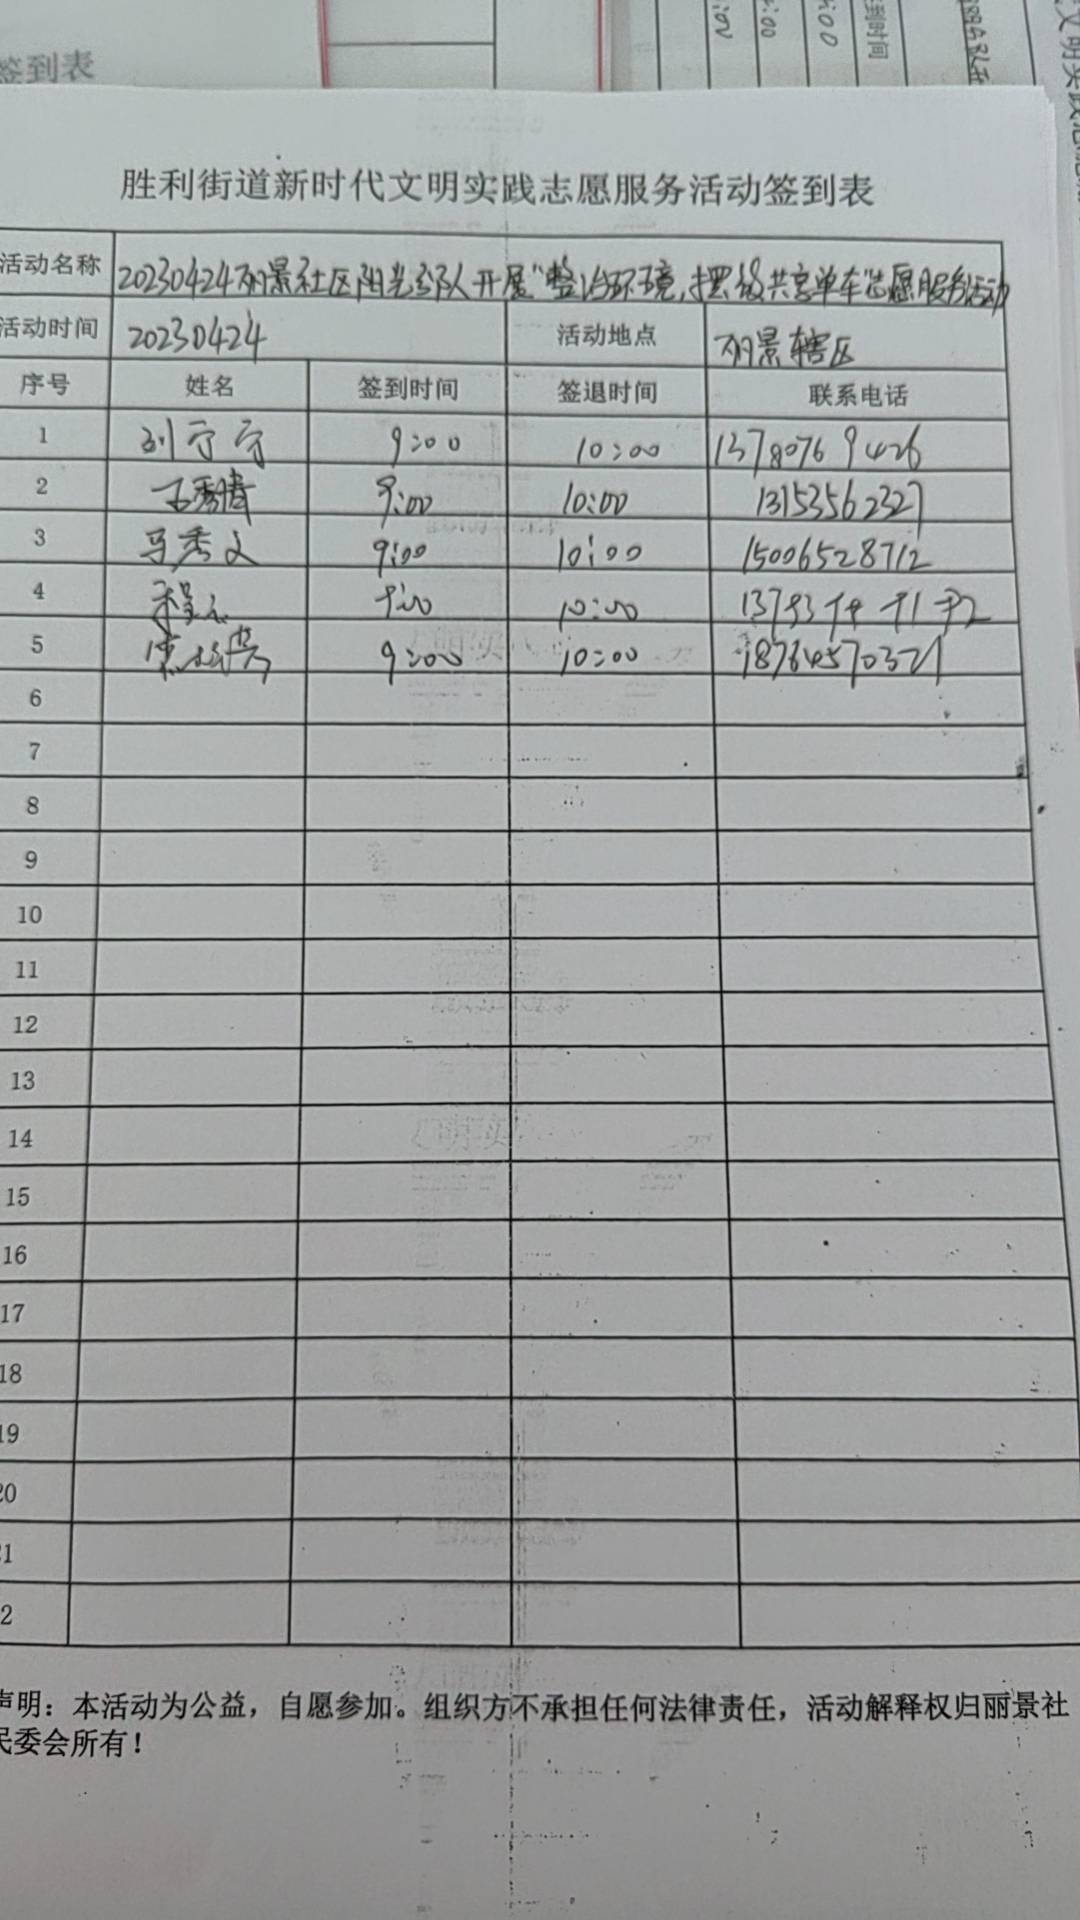 签到表
签到时间
胜利街道新时代文明实践志愿服务活动签到表
活动名称 20230424丽景社区阳光分队开展"整治环境,摆放共享单车"志愿服务活动
活动时间 20230424 活动地点 丽景辖区
序号 姓名 签到时间 签退时间 联系电话
1 刘宁宁 9:00 10:00 13780769426
2 9:00 10:00 13153562327
3 马秀文 9:00 10:00 15006528712
4 9:00 10:00
5 9:00 10:00 18764570321
6
7
8
9
10
11
12
13
14
15
16
17
18
19
20
1
2
声明：本活动为公益，自愿参加。组织方不承担任何法律责任，活动解释权归丽景社
民委会所有！